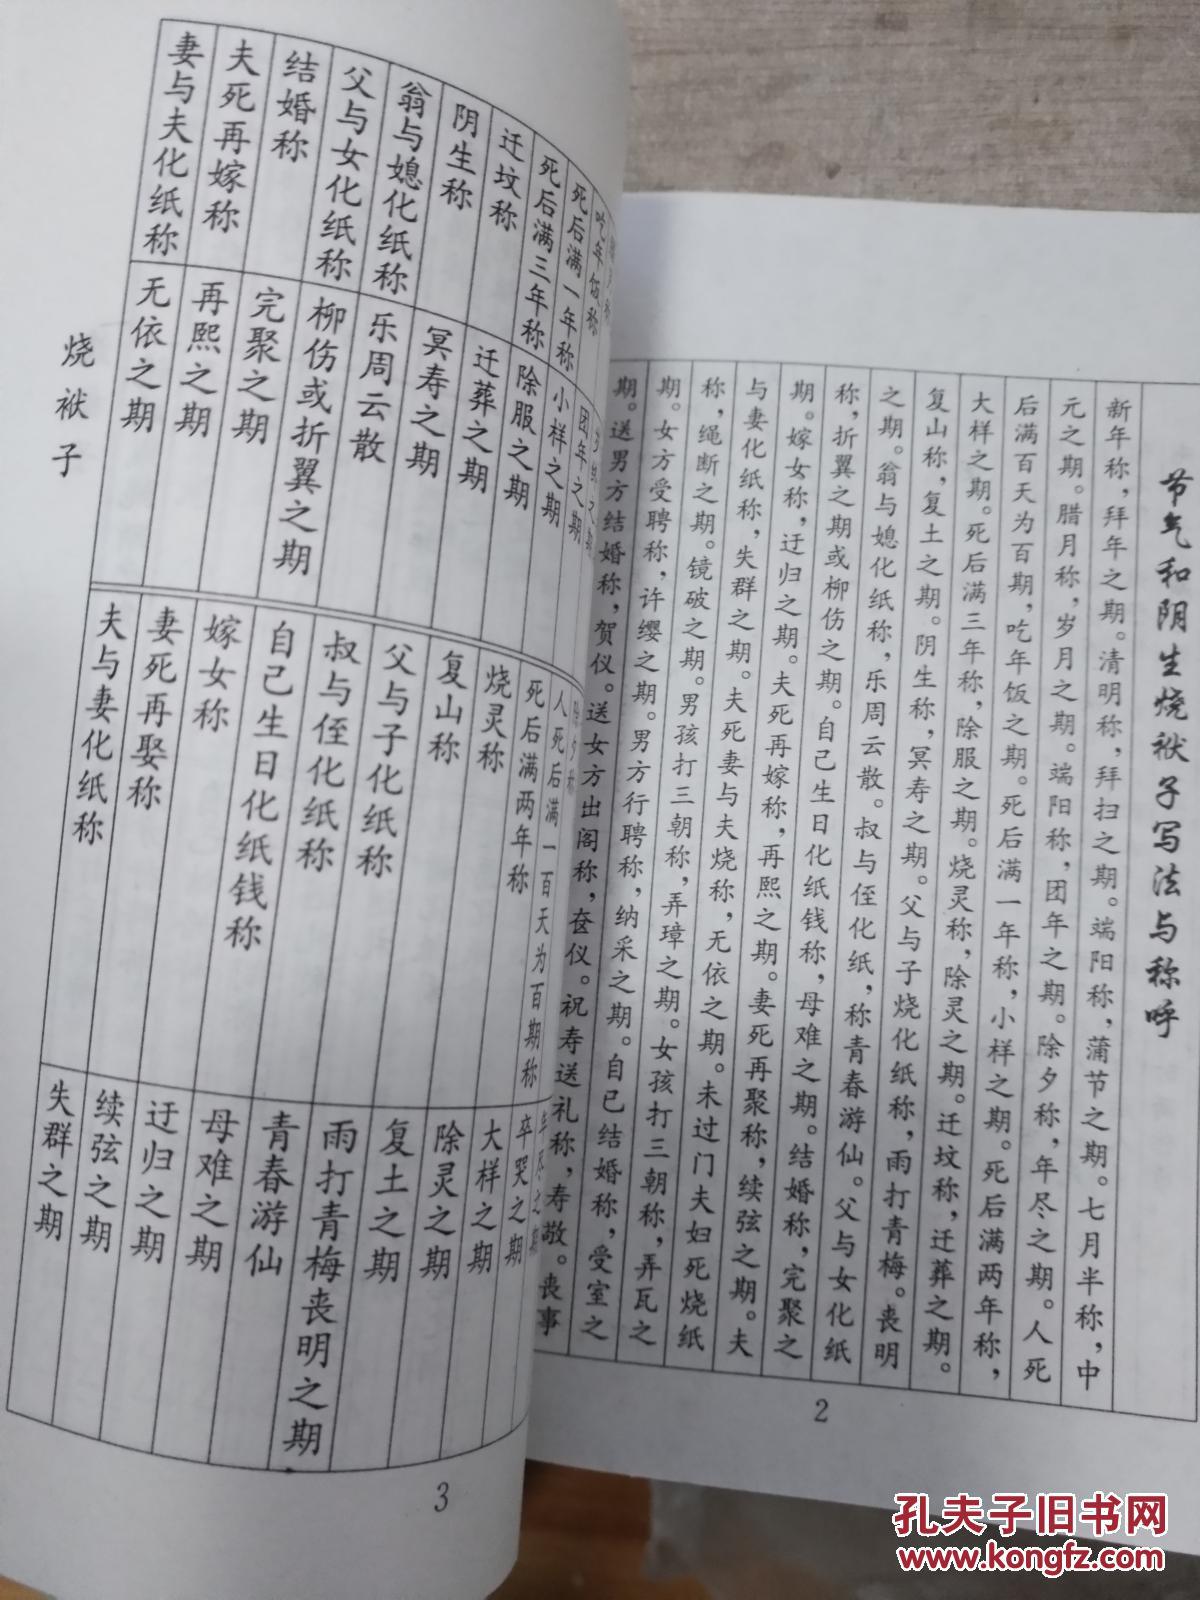 节气和阴生烧袱子写法与称呼
新年称，拜年之期。清明称，拜扫之期。端阳称，蒲节之期。七月半称，中
元之期。腊月称，岁月之期。端阳称，团年之期。除夕称，年尽之期。人死
后满百天为百期，吃年饭之期。死后满一年称，小样之期。死后满两年称，
大样之期。死后满三年称，除服之期。烧灵称，除灵之期。迁坟称，迁葬之期。
复山称，复土之期。阴生称，冥寿之期。父与子烧化纸称，雨打青梅。丧明
之期。翁与媳化纸称，乐周云散。叔与侄化纸，称青春游仙。父与女化纸
称，折翼之期或柳伤之期。自己生日化纸钱称，母难之期。结婚称，完聚之
期。嫁女称，迂归之期。夫死再嫁称，再熙之期。妻死再聚称，续弦之期。夫
与妻化纸称，失群之期。夫死妻与夫烧称，无依之期。未过门夫妇死烧纸
称，绳断之期。镜破之期。男孩打三朝称，弄璋之期。女孩打三朝称，弄瓦之
期。女方受聘称，许缨之期。男方行聘称，纳采之期。自己结婚称，受室之
期。送男方结婚称，贺仪。送女方出阁称，奁仪。祝寿送礼称，寿敬。丧事
2
吃年饭称
团年之期
人死后满一百天为百期称
卒哭之期
死后满一年称
小样之期
死后满两年称
大样之期
死后满三年称
除服之期
烧灵称
除灵之期
迁坟称
迁葬之期
复山称
复土之期
阴生称
冥寿之期
父与子化纸称
雨打青梅丧明之期
翁与媳化纸称
乐周云散
叔与侄化纸称
青春游仙
父与女化纸称
柳伤或折翼之期
自己生日化纸钱称
母难之期
结婚称
完聚之期
嫁女称
迂归之期
夫死再嫁称
再熙之期
妻死再娶称
续弦之期
妻与夫化纸称
无依之期
夫与妻化纸称
失群之期
烧袱子
3
孔夫子旧书网
www.kongfz.com